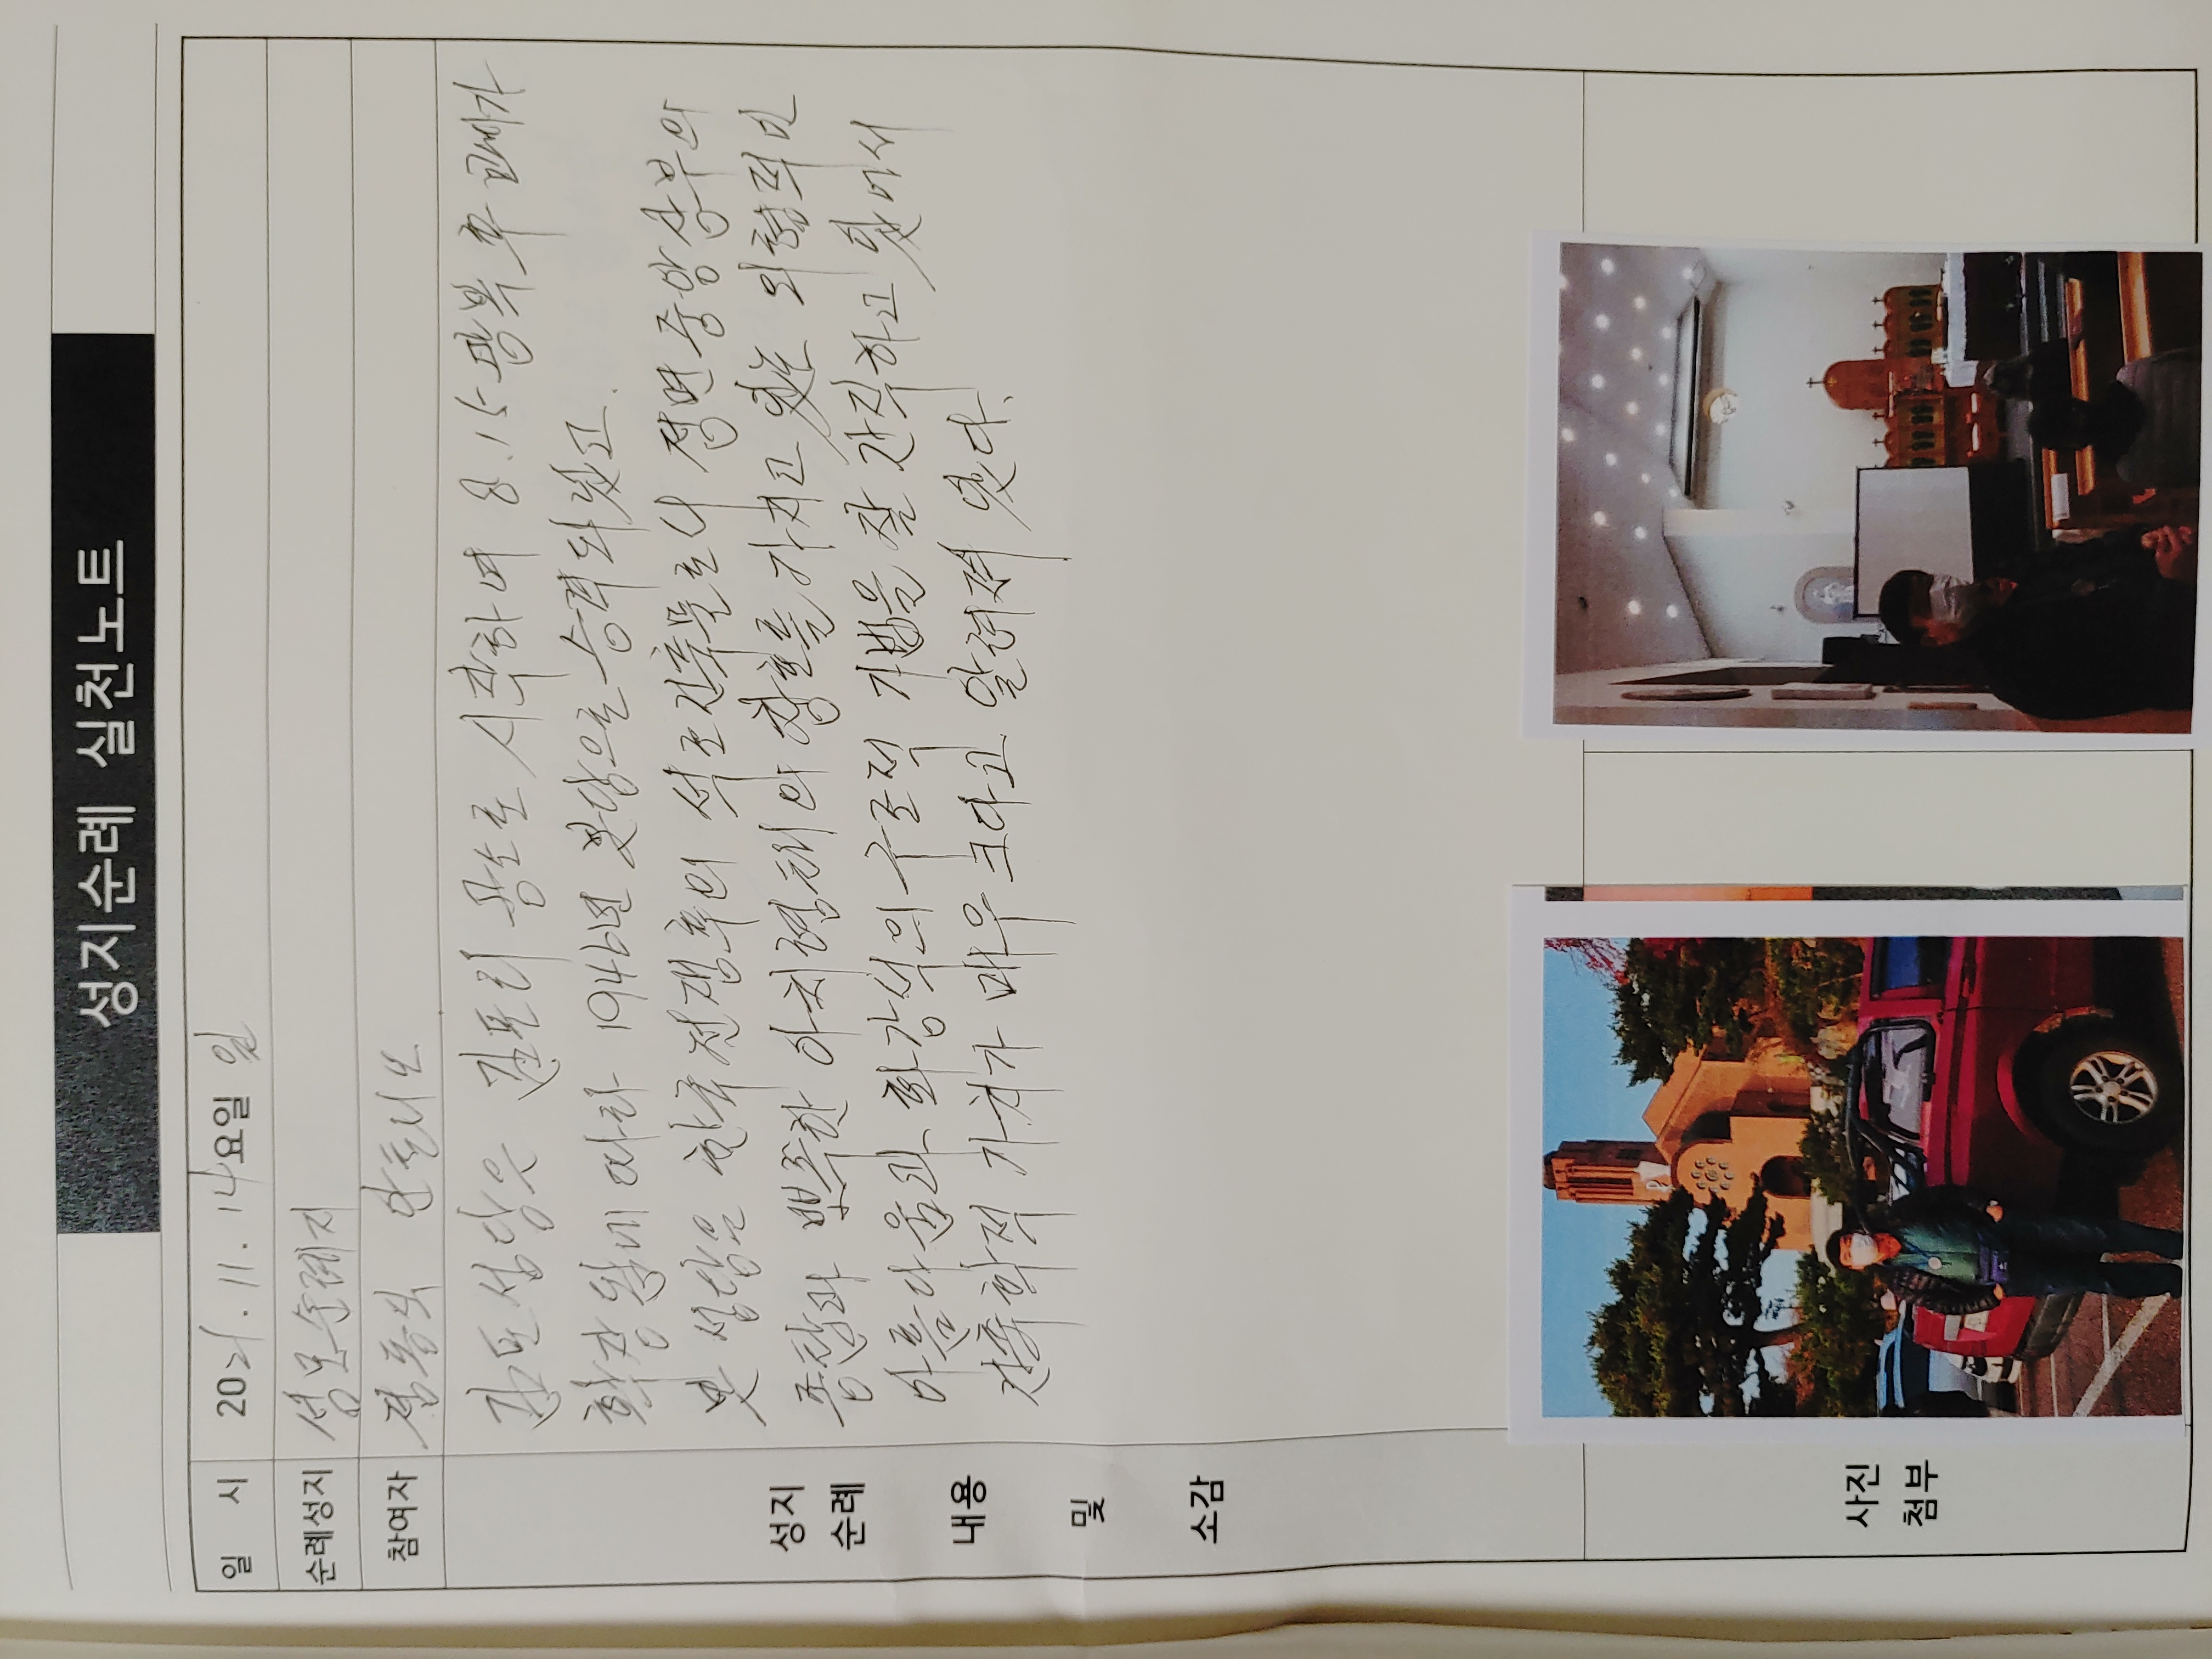 성지순례 실천노트
일 시 2021. 11. 14 요일 일
순례성지 성모순례지
참여자 안토니오
성지 순례 내용 및 소감
김포성당은 김포리 공소로 시작하여 8.15 광복 후 교세가
확장됨에 따라 1946년 본당으로 승격되었고.
옛 성당은 한국전쟁후의 석조건축물로서 정면 중앙상부의
종탑과 뾰족한 아치형태의 창호를 가지고 있는 외형적인
아름다움과 화강석의 구조적 기법을 잘 간직하고 있어서
건축학적 가치가 매우 크다고 알려져 있다.
사진
첨부